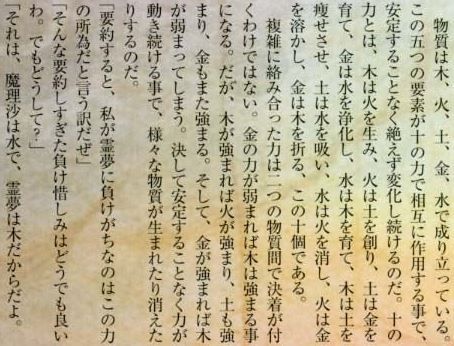 物質は木、火、土、金、水で成り立っている。
この五つの要素が十の力で相互に作用する事で、
安定することなく絶えず変化し続けるのだ。十の
力とは、木は火を生み、火は土を創り、土は金を
育て、金は水を浄化し、水は木を育て、木は土を
痩せさせ、土は水を吸い、水は火を消し、火は金
を溶かし、金は木を折る、この十個である。
複雑に絡み合った力は二つの物質間で決着が付
くわけではない。金の力が弱まれば木は強まる事
になる。だが、木が強まれば火が強まり、土も強
まり、金もまた強まる。そして、金が強まれば木
が弱まってしまう。決して安定することなく力が
動き続ける事で、様々な物質が生まれたり消えた
りするのだ。
「要約すると、私が霊夢に負けがちなのはこの力
の所為だと言う訳だぜ」
「そんな要約しすぎた負け惜しみはどうでも良い
わ。でもどうして？」
「それは、魔理沙は水で、霊夢は木だからだよ。